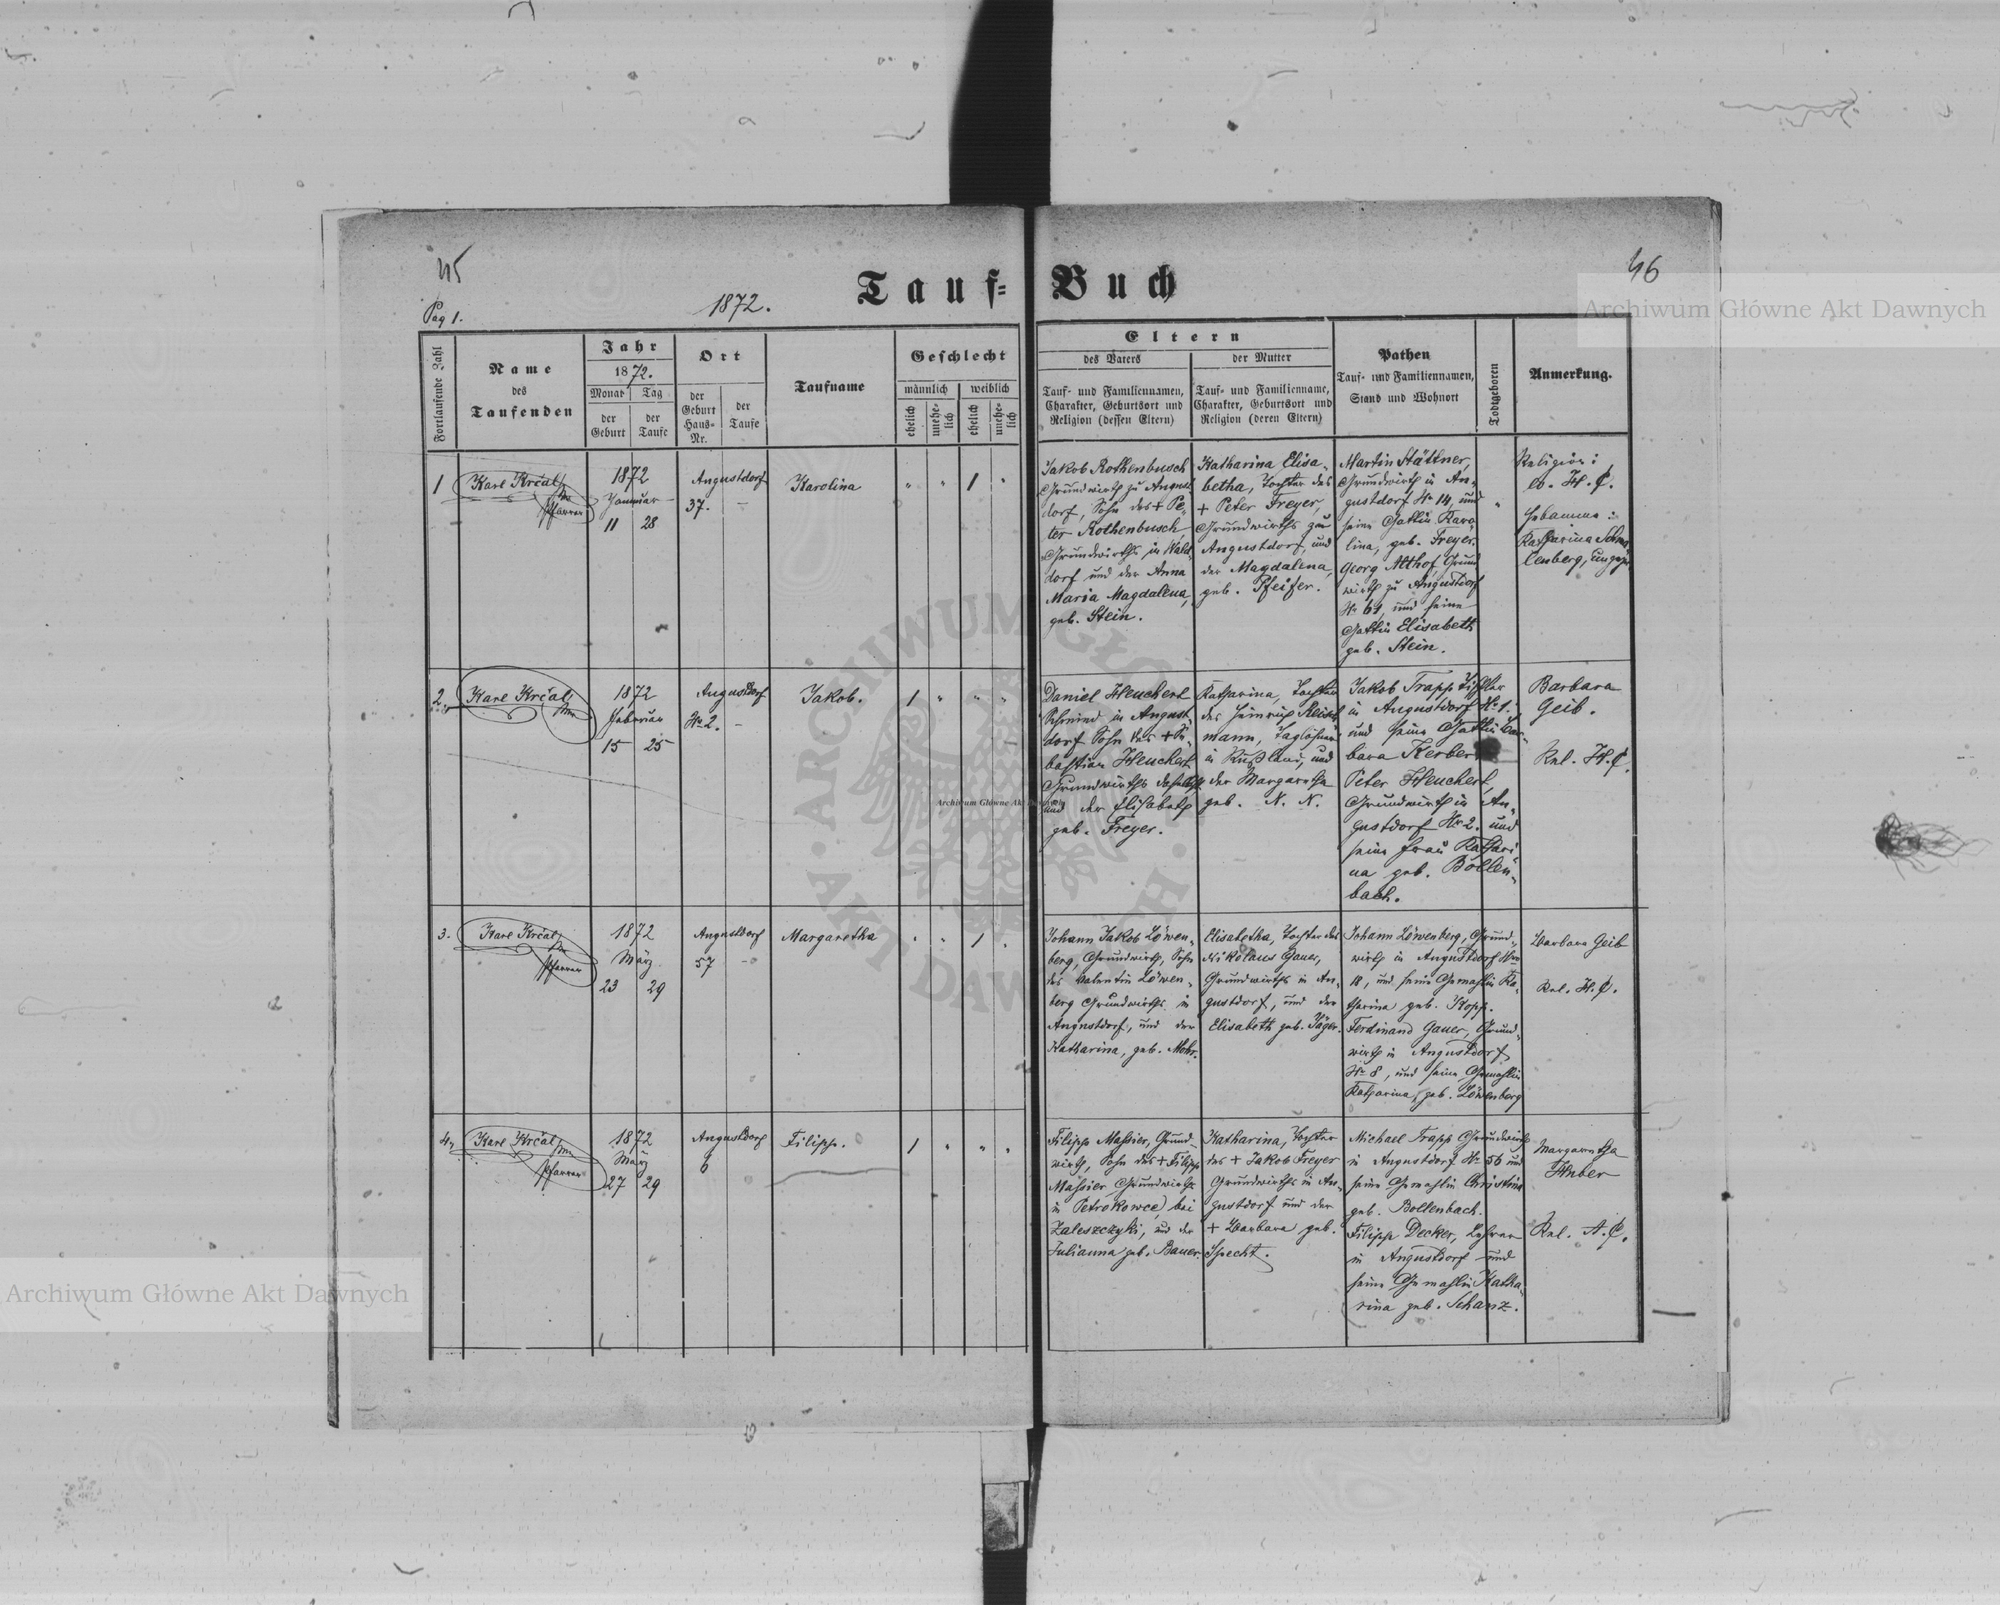 45
46
Tauf-Buch
Pag 1.
1872.
Archiwum Główne Akt Dawnych
Fortlaufende Zahl
Name
des
Taufenden
Jahr
1872.
Monat Tag
der Geburt
der Taufe
Ort
der Geburt Haus-Nr.
der Taufe
Taufname
Geschlecht
männlich weiblich
ehelich
unehe-lich
ehelich
unehe-lich
Eltern
des Vaters
Tauf- und Familiennamen,
Charakter, Geburtsort und
Religion (dessen Eltern)
der Mutter
Tauf- und Familienname,
Charakter, Geburtsort und
Religion (deren Eltern)
Pathen
Tauf- und Familiennamen,
Stand und Wohnort
Todtgeboren
Anmerkung.
1
Karl Krčal
Pfarrer
1872
Januar
11 28
Augustdorf
37. –
Karolina
" " 1 "
Jakob Rothenbusch
Grundwirth zu August
dorf, Sohn des + Pe-
ter Rothenbusch
Grundwirths in Wald
dorf und der Anna
Maria Magdalena,
geb. Stein.
Katharina Elisa-
betha, Tochter des
+ Peter Freyer,
Grundwirths zu
Augustdorf, und
der Magdalena,
geb. Pfeifer.
Martin Stättner,
Grundwirth in Au-
gustdorf Nr 14, und
seine Gattin Karo-
lina, geb. Freyer.
Georg Althof, Grund
wirth zu Augustdorf
Nr 64, und seine
Gattin Elisabeth
geb. Stein.
"
Religion:
ev. H. C.
Hebamme:
Katharina
2.
Karl Krčal
1872
Februar
15 25
Augustdorf
Nr 2. –
Jakob.
1 " " "
Daniel Heuchert
Schmied in August
dorf Sohn des + Se
bastian Heuchert
Grundwirths daselbst
und der Elisabeth
geb. Freyer.
Katharina, Tochter
des Heinrich
mann, Taglöhner
in Rußland, und
der Margaretha
geb. N. N.
Jakob Trapp Tischler
in Augustdorf Nr 1.
und seine Gattin Bar-
bara Kerber
Peter Heuchert,
Grundwirth in Au-
gustdorf Nr 2. und
seine Frau Kathari
na geb. Bollen-
bach.
Barbara
Geib.
Rel. H. C.
3.
Karl Krčal
Pfarrer
1872
März
23 29
Augustdorf
57 –
Margaretha
" " 1 "
Johann Jakob Löwen-
berg, Grundwirth, Sohn
des Valentin Löwen-
berg Grundwirths in
Augustdorf, und der
Katharina, geb. Mohr.
Elisabetha, Tochter des
Nikolaus Gauer,
Grundwirths in Au-
gustdorf, und der
Elisabeth geb. Jäger.
Johann Löwenberg, Grund-
wirth in Augustdorf Nro
18, und seine Gemahlin Ka-
tharina geb. Kopf.
Ferdinand Gauer, Grund-
wirth in Augustdorf
Nr 8, und seine Gemahlin
Katharina, geb. Löwenberg
Barbara Geib
Rel. H. C.
4.
Karl Krčal
Pfarrer
1872
März
27 29
Augustdorf
6
Filipp.
1 " " "
Filipp Massier, Grund-
wirth, Sohn des + Filipp
Massier Grundwirths
in Petrokowce bei
Zaleszczyki, und der
Julianna geb. Bauer.
Katharina, Tochter
des + Jakob Freyer
Grundwirths in Au-
gustdorf und der
+ Barbara geb.
Specht.
Michael Trapp Grundwirth
in Augustdorf Nr 56 und
seine Gemahlin Christina
geb. Bollenbach.
Filipp Decker, Lehrer
in Augustdorf und
seine Gemahlin Katha-
rina geb. Schanz.
Margaretha
Huber
Rel. A. C.
Archiwum Główne Akt Dawnych
ARCHIWUM GŁÓWNE AKT DAWNYCH
Archiwum Główne Akt Dawnych